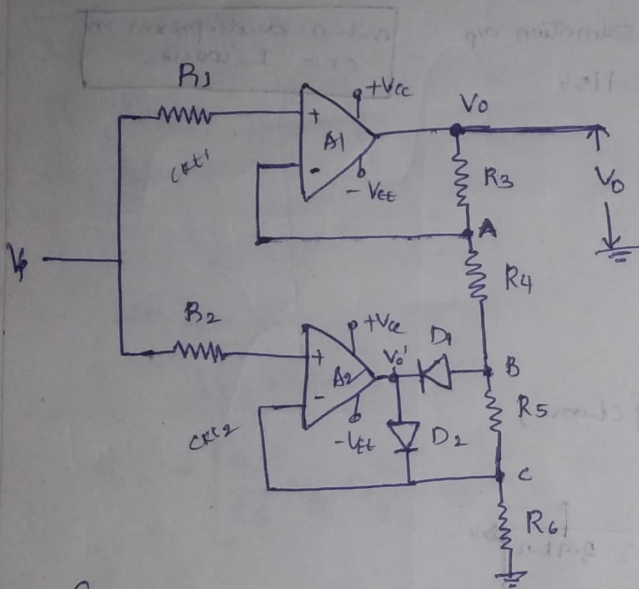 R1
+Vcc
Vo
+
A1
-
CKt1
-VEE
R3
Vo
A
R4
R2
+Vcc
D1
+
A2
Vo'
B
-
R5
CKt2
-VEE
D2
C
R6